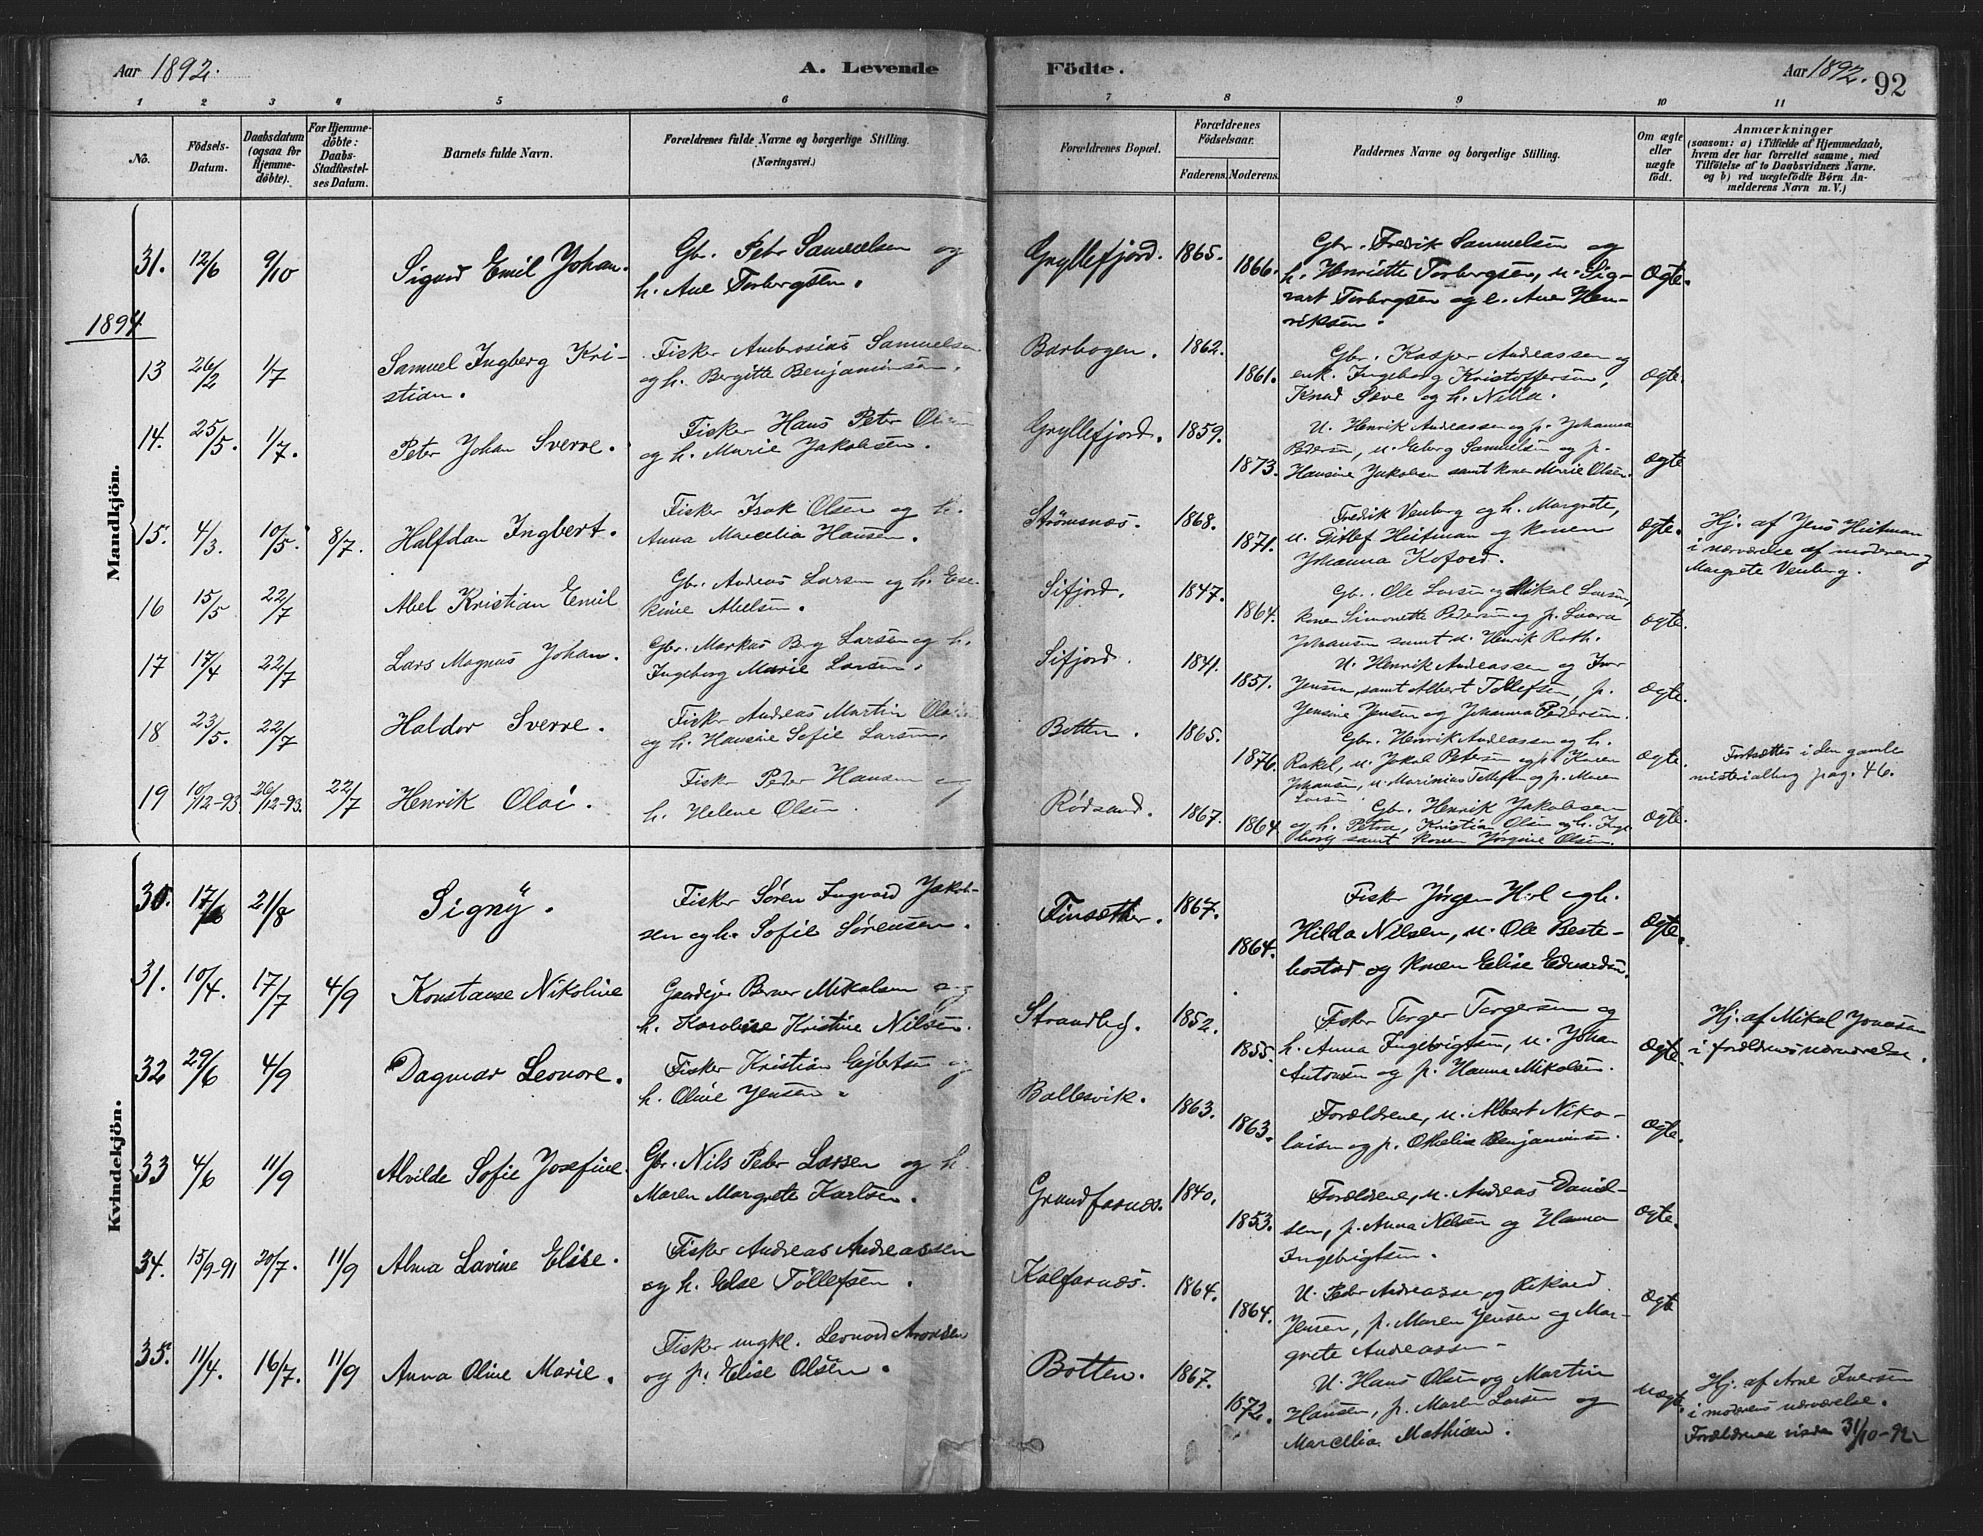 Aar 1892. A. Levende Födte. Aar 1892. 92
1 2 3 4 5 6 7 8 9 10 11
No. Födsels-Datum. Daabsdatum (ogsaa for Hjemme-döbte). For Hjemme-döbte: Daabs-Stadfæstel-ses Datum. Barnets fulde Navn. Forældrenes fulde Navne og borgerlige Stilling. (Næringsvei.) Forældrenes Bopæl. Forældrenes Födselsaar. Faderens. Moderens. Faddernes Navne og borgerlige Stilling. Om ægte eller uægte födt. Anmærkninger (saasom: a) i Tilfælde af Hjemmedaab, hvem der har forrettet samme, med Tilföielse af to Daabsvidners Navne, og b) ved uægtefödte Börn An-melderens Navn m. V.)
Mandkjön.
31. 12/6 9/10 Sigurd Emil Johan. Gbr. Peter Samuelsen og
h. Ane Torbergsen. Gryllefjord. 1865. 1866. Gbr. Fredrik Samuelsen og
h. Henriette Torbergsen, u. Sig-
vart Torbergsen og e. Ane Hen-
riksen. Ægte.
1894
13 26/2 1/7 Samuel Ingberg Kri-
stian. Fisker Ambrosius Samuelsen
og h. Bergitte Benjaminsen. Barbogen. 1862. 1861. Gbr. Kasper Andreassen og
enk. Ingeborg Kristoffersen,
Knud Save og h. Nilla. Ægte.
14. 25/5. 1/7. Peter Johan Sverre. Fisker Hans Peter Olsen
og h. Marie Jakobsen. Gryllefjord. 1859. 1873. U. Henrik Andreassen og p. Johanna
Pedersen, u. Eberg Samuelsen og p.
Hansine Jakobsen samt konen Marie Olsen. Ægte
15. 4/3. 10/5. 8/7. Halfdan Ingbert. Fisker Isak Olsen og h.
Anna Marcelia Hansen. Strømsnæs. 1868. 1871. Fredrik Venberg og h. Margrete,
u. Ditlef Heitman og konen
Johanna Kofoed. Ægte. Hj. af Jens Heitman
i nærværelse af moderen og
Margrete Venberg.
16 15/5 22/7 Abel Kristian Emil Gbr. Andreas Larsen og h. Ese-
kine Abelsen. Sifjord. 1847. 1864. Gbr. Ole Larsen og Mikal Larsen,
konen Simonette Pedersen og p. Laura
Johansen samt u. Henrik Roth. Ægte.
17 17/4 22/7 Lars Magnus Johan. Gbr. Markus Berg Larsen og h.
Ingeborg Marie Larsen. Sifjord. 1841. 1851. U. Henrik Andreassen og
Jensen, samt Albert Tollefsen, p.
Jensine Jensen og Johanna Pedersen. Ægte.
18 23/5. 22/7 Haldor Sverre. Fisker Andreas Martin
og h. Hansine Sofie Larsen. Botten. 1865. 1876. Gbr. Henrik Andreassen og h.
Rakel, u. Jakob Petersen og p. Karen
Johansen, u. Marinius Tollefsen og p. Maren
Larsen Ægte. Fortsættes i den gamle
misterialbog pag. 46.
19 10/12-93. 26/12-93. 22/7 Henrik Olai. Fisker Peder Hansen og
h. Helene Olsen. Rødsand. 1867. 1864 Gbr. Henrik Jakobsen
og h. Petra, Kristian Olsen og h. Inge-
borg samt konen Jørgine Olsen. Ægte.
Kvindekjön.
30. 17/6 21/8 Signy. Fisker Sören Ingvard Jakob-
sen og h. Sofie Sörensen. Finsæther. 1867. 1864. Fisker Jørgen Hol og h.
Hilda Nilsen, u. Ole Beste-
bostad og konen Elise Edvardsen. Ægte.
31. 10/4. 17/7 4/9 Konstanse Nikoline Gaardejer Berner Mikalsen og
h. Karoline Kristine Nilsen. Strandleg. 1852. 1855. Fisker Torger Torgersen og
h. Anna Ingebrigtsen, u. Johan
Antonsen og p. Hanna Mikalsen. Ægte. Hj. af Mikal Jonassen
i forældrenes nærværelse.
32 29/6 4/9 Dagmar Leonore. Fisker Kristian Ejbertsen og
h. Oline Jensen. Ballesvik. 1863. 1863. Forældrene, u. Albert Niko-
laisen og p. Othelie Benjaminsen. Ægte.
33 4/6 11/9 Alvilde Sofie Josefine. Gbr. Nils Peter Larsen og h.
Maren Margrete Karlsen. Grundfarnes. 1840. 1853. Forældrene, u. Andreas Daniel-
sen, p. Anna Nilsen og Hanna
Ingebrigtsen. Ægte.
34. 15/9-91 20/7. 11/9 Alma Lavine Elise. Fisker Andreas Andreassen
og h. Else Töllefsen. Kalfarnæs. 1864. 1864. U. Peder Andreassen og Rikard
Jensen, p. Maren Jensen og Mar-
grete Andreassen. Ægte
35. 11/4. 16/7. 11/9 Anna Oline Marie. Fisker ungkl. Leonard Aronsen
og p. Elise Olsen. Botten. 1867. 1872. U. Hans Olsen og Martin
Hansen, p. Maren Larsen og
Marcelia Mathisen. Uægte. Hj. af Arne Iversen
i moderens nærværelse.
Forældrene viede 31/10-92